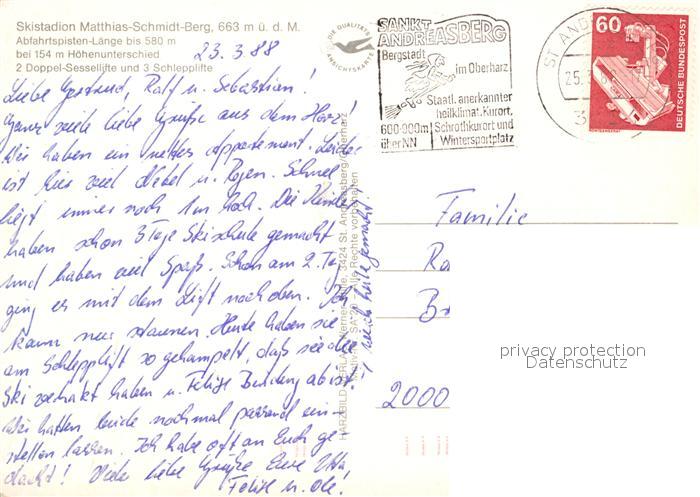 Skistadion Matthias-Schmidt-Berg, 663 m ü. d. M.
Abfahrtspisten-Länge bis 580 m
bei 154 m Höhenunterschied
2 Doppel-Sessellifte und 3 Schlepplifte
23.3.88
Liebe Gertrud, Ralf u. Sebastian!
Ganz viele liebe Grüße aus dem Harz!
Wir haben ein nettes Appartement. Leider
ist hier viel Nebel u. Regen. Schnee
liegt immer noch 1m hoch. Die Kinder
haben schon 3 Tage Skischule gemacht
und haben viel Spaß. Schon am 2. Tag
ging es mit dem Lift nach oben. Ich
kann nur staunen. Heute haben sie
am Schlepplift so gehampelt, daß sie die
Ski verhakt haben u. Felix Bindung ab ist!
Wir hatten beide nochmal passend ein-
stellen lassen. Ich habe oft an Euch ge
dacht! Viele liebe Grüße Eure
Felix u. Ole!
habe ich heute gemacht
DIE QUALITÄTS
ANSICHTSKARTE
HARZBILD VERLAG 3424 St. Andreasberg/Oberharz
Alle Rechte vorbehalten
SANKT
ANDREASBERG
Bergstadt
im Oberharz
Staatl. anerkannter
heilklimat. Kurort,
600-900m Schrothkurort und
über NN Wintersportplatz
ST AND
25.
60
DEUTSCHE BUNDESPOST
RÖNTGENGERÄT
Familie
Ra
B
2000
privacy protection
Datenschutz